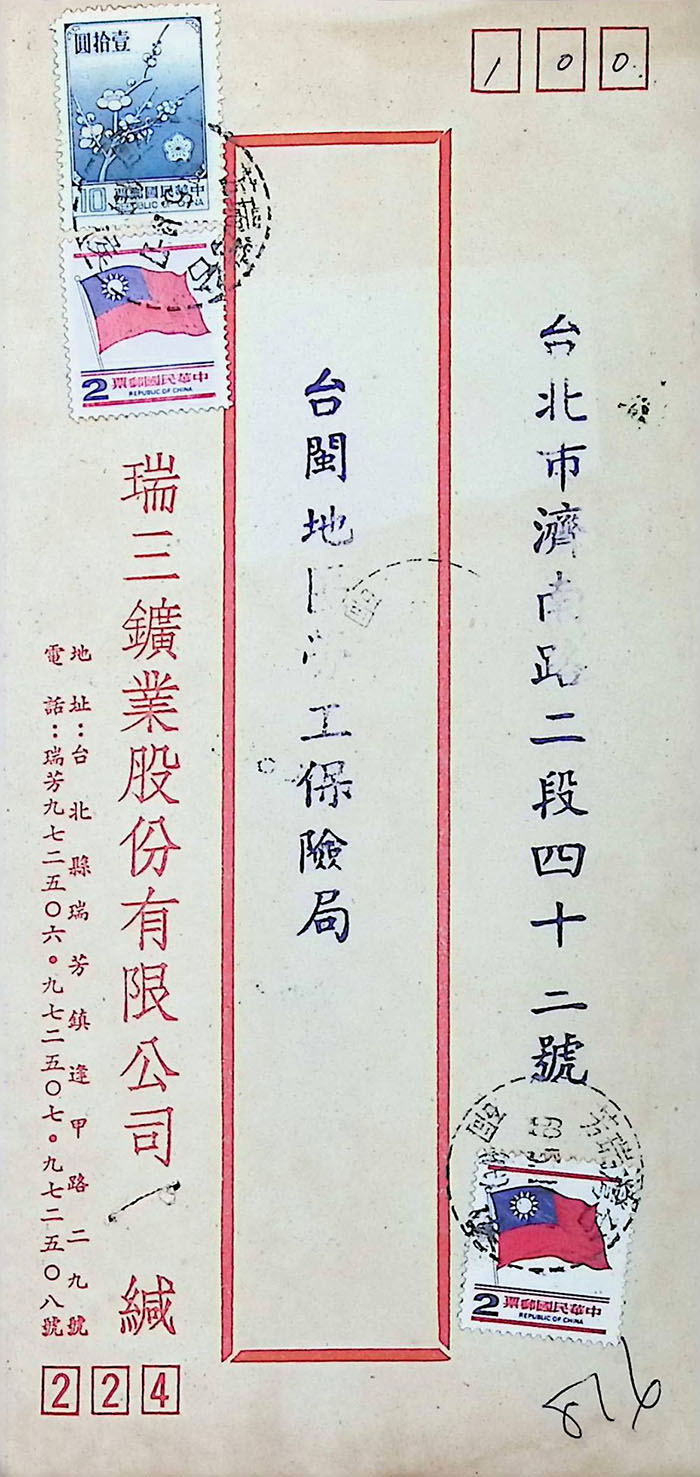 100
台北市濟南路二段四十二號
台閩地區勞工保險局
瑞三鑛業股份有限公司 緘
地址：台北縣瑞芳鎮逢甲路二九號
電話：瑞芳九七二五〇六・九七二五〇七・九七二五〇八
224
壹拾圓
10 中華民國郵票
REPUBLIC OF CHINA
2 中華民國郵票
REPUBLIC OF CHINA
2 中華民國郵票
REPUBLIC OF CHINA